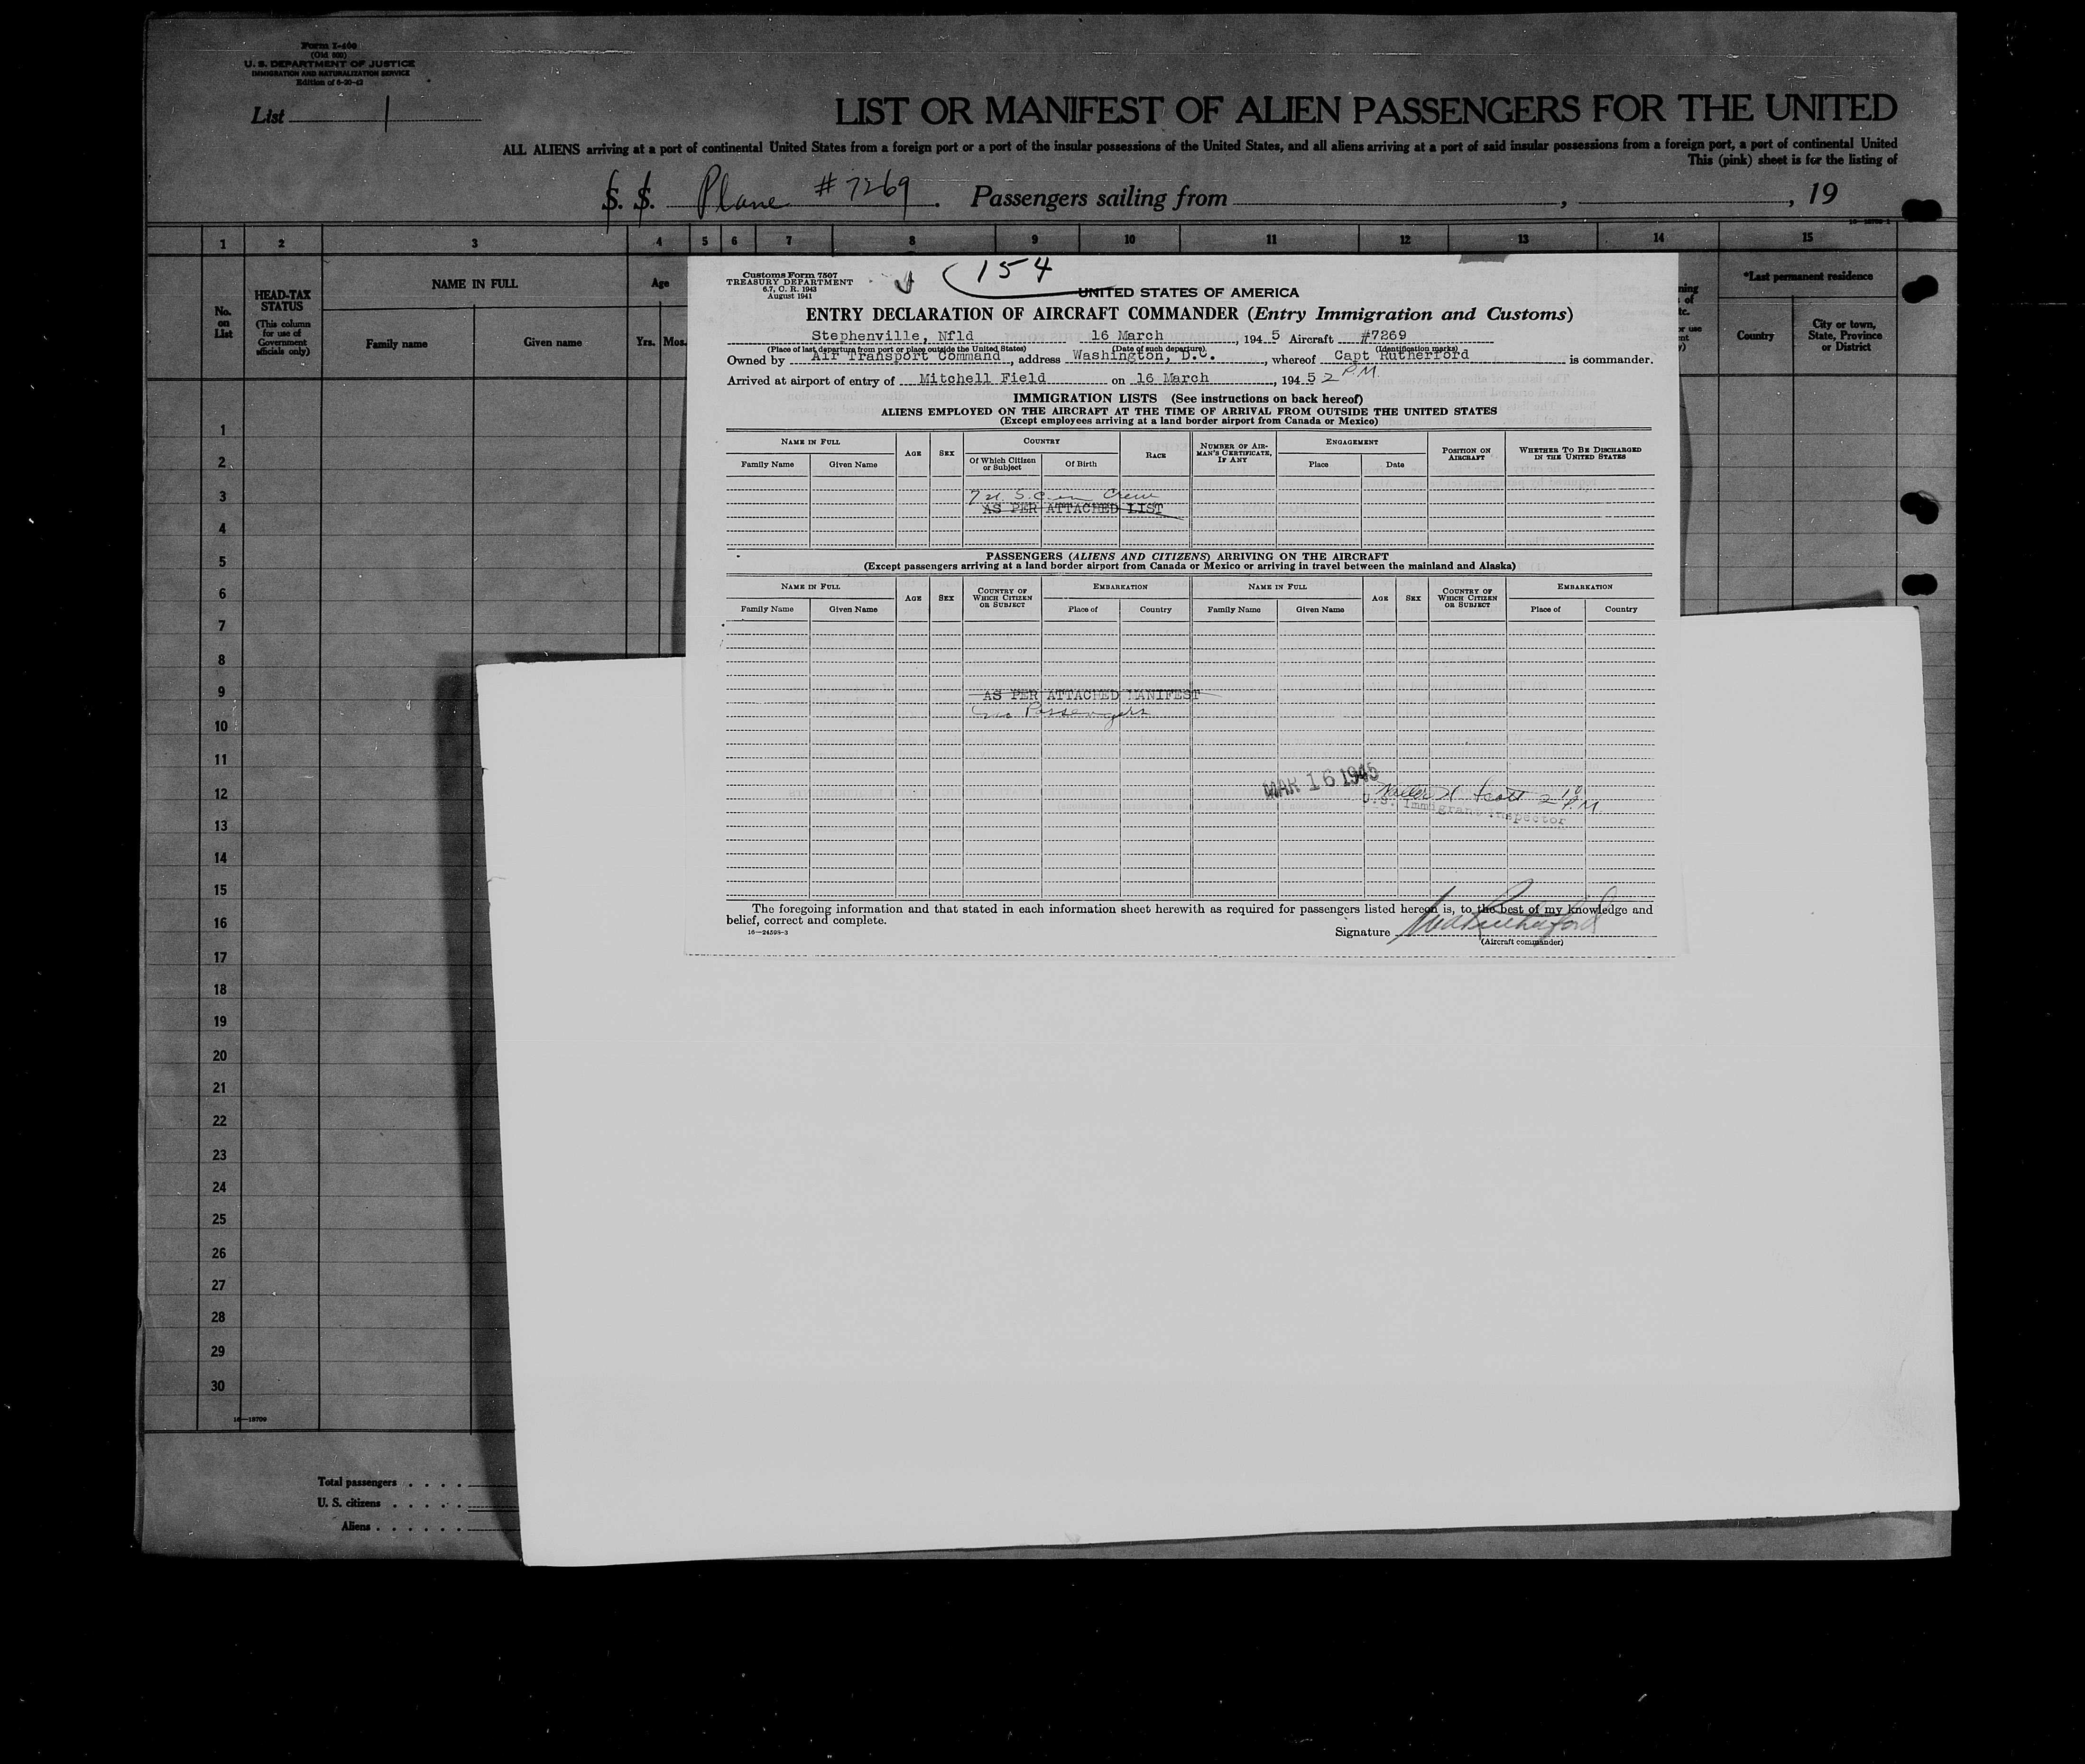 Form I-400
(Old 500)
U. S. DEPARTMENT OF JUSTICE
IMMIGRATION AND NATURALIZATION SERVICE
Edition of 6-30-43
List 1
LIST OR MANIFEST OF ALIEN PASSENGERS FOR THE UNITED
ALL ALIENS arriving at a port of continental United States from a foreign port or a port of the insular possessions of the United States, and all aliens arriving at a port of said insular possessions from a foreign port, a port of continental United
This (pink) sheet is for the listing of
S. S. Plane #7269. Passengers sailing from , , 19
1 2 3 4 5 6 7 8 9 10 11 12 13 14 15
No. on List
HEAD-TAX STATUS
(This column for use of Government officials only)
NAME IN FULL
Family name Given name
Age
Yrs. Mos.
*Last permanent residence
Country City or town, State, Province or District
1
2
3
4
5
6
7
8
9
10
11
12
13
14
15
16
17
18
19
20
21
22
23
24
25
26
27
28
29
30
16—18709
Total passengers . . . .
U. S. citizens . . . . .
Aliens . . . . . .
Customs Form 7507
TREASURY DEPARTMENT
6.7, C. R. 1943
August 1941
154
UNITED STATES OF AMERICA
ENTRY DECLARATION OF AIRCRAFT COMMANDER (Entry Immigration and Customs)
Stephenville, Nfld 16 March, 1945 Aircraft #7269
(Place of last departure from port or place outside the United States) (Date of such departure) (Identification marks)
Owned by Air Transport Command, address Washington, D.C., whereof Capt Rutherford is commander.
Arrived at airport of entry of Mitchell Field on 16 March, 1945 2 P.M.
IMMIGRATION LISTS (See instructions on back hereof)
ALIENS EMPLOYED ON THE AIRCRAFT AT THE TIME OF ARRIVAL FROM OUTSIDE THE UNITED STATES
(Except employees arriving at a land border airport from Canada or Mexico)
NAME IN FULL AGE SEX COUNTRY RACE NUMBER OF AIRMAN'S CERTIFICATE, IF ANY ENGAGEMENT POSITION ON AIRCRAFT WHETHER TO BE DISCHARGED IN THE UNITED STATES
Family Name Given Name Of Which Citizen or Subject Of Birth Place Date
Crew
AS PER ATTACHED LIST
PASSENGERS (ALIENS AND CITIZENS) ARRIVING ON THE AIRCRAFT
(Except passengers arriving at a land border airport from Canada or Mexico or arriving in travel between the mainland and Alaska)
NAME IN FULL AGE SEX COUNTRY OF WHICH CITIZEN OR SUBJECT EMBARKATION NAME IN FULL AGE SEX COUNTRY OF WHICH CITIZEN OR SUBJECT EMBARKATION
Family Name Given Name Place of Country Family Name Given Name Place of Country
AS PER ATTACHED MANIFEST
Passengers
MAR 16 1945
Scott 2 10 P.M.
U.S. Immigrant Inspector
The foregoing information and that stated in each information sheet herewith as required for passengers listed hereon is, to the best of my knowledge and
belief, correct and complete.
16—24598-3
Signature Rutherford
(Aircraft commander)